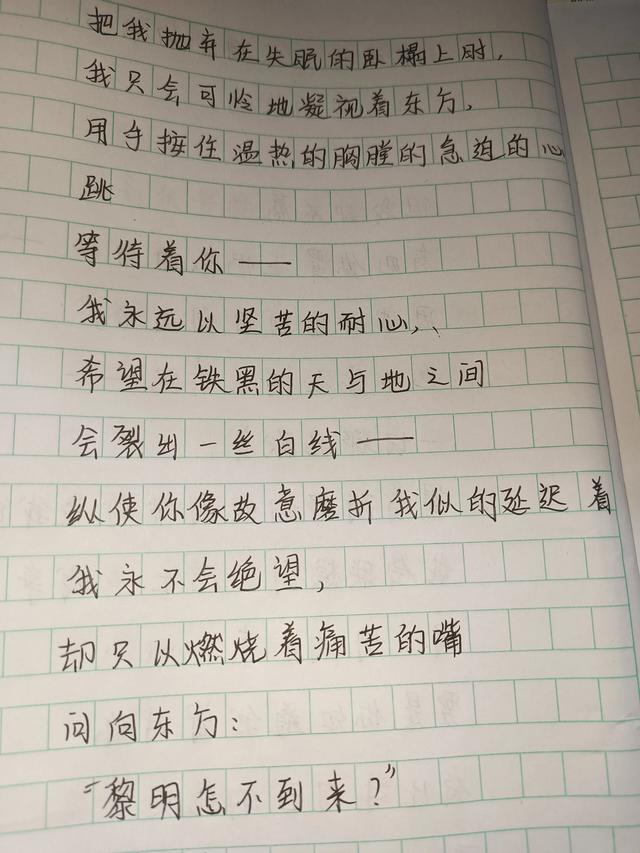 把我抛弃在失眠的卧榻上时，
我只会可怜地凝视着东方，
用手按住温热的胸膛的急迫的心
跳
等待着你——
我永远以坚苦的耐心，、
希望在铁黑的天与地之间
会裂出一丝白线——
纵使你像故意磨折我似的延迟着
我永不会绝望，
却只以燃烧着痛苦的嘴
问向东方：
“黎明怎不到来？”